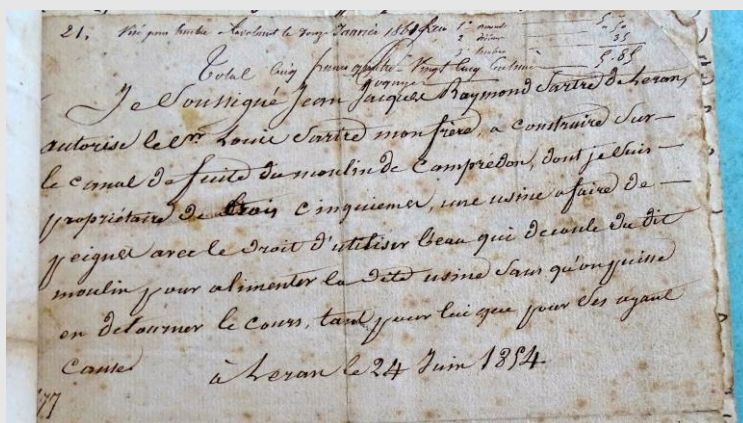 21. Visé pour timbre à Lavelanet le Janvier 1861
5.85
Total cinq francs quatre-vingt cinq centimes
Je Soussigné Jean Jacques Raymond Sartre de Leran,
autorise le Sr Louis Sartre mon frère, a construire Sur
le canal de fuite du moulin de Campredon, dont je Suis
propriétaire de trois cinquiemes, une usine a faire de
peignes avec le droit d'utiliser l'eau qui decoule du dit
moulin pour alimenter la dite usine Sans qu'on puisse
en detourner le cours, tant pour lui que pour Ses ayant
Cause
à Leran le 24 Juin 1854